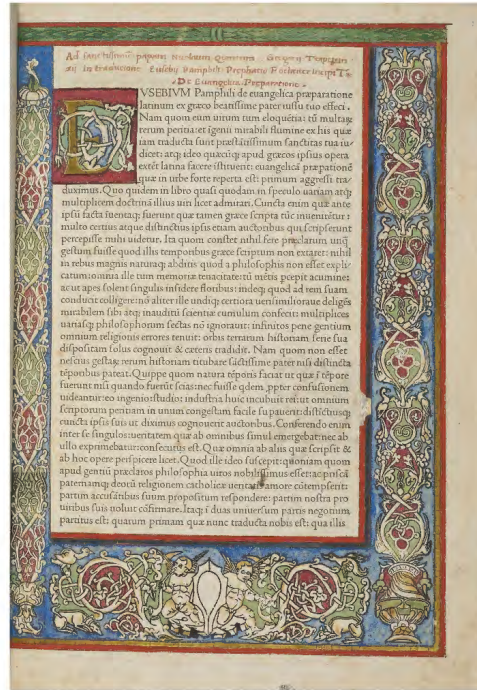 Ad sanctissimū papam Nicolaum Quintum Georgii Trapezun
tii in traductione Eusebii Pamphili Prephatio Foeliciter incipit
De Evangelica Preparatione
EVSEBIVM Pamphili de euangelica præparatione
latinum ex græco beatissime pater iussu tuo effeci.
Nam quom eum uirum tum eloquētia: tū multaꝝ
rerum peritia: et īgenii mirabili flumine ex his quæ
iam traducta sunt præstātissimum sanctitas tua iu-
dicet: atq; ideo quæcūq; apud græcos ipsius opera
extēt latina facere īstituerit: euangelicā præpationē
quæ in urbe forte reperta est: primum aggressi tra-
duximus. Quo quidem in libro quasi quodam in speculo uariam atq;
multiplicem doctrinā illius uiri licet admirari. Cuncta enim quæ ante
ipsū facta īuentaq; fuerunt quæ tamen græce scripta tūc inuenirētur:
multo certius atque distinctius ipsis etiam auctoribus qui scripserunt
percepisse mihi uidetur. Ita quom constet nihil fere præclarum unq̄
gestum fuisse quod illis temporibus græce scriptum non extaret: nihil
in rebus magnis naturaq; abditis quod a philosophis non esset expli-
catum: omnia ille tum memoriæ tenacitate: tū mētis pcepit acumine:
ac ut apes solent singulis insidere floribus: indeq; quod ad rem suam
conducit colligere: nō aliter ille undiq; certiora uerisimilioraue deligēs
mirabilem sibi atq; inauditū scientiæ cumulum confecit: multiplices
uariasq; philosophorum sectas nō ignorauit: infinitos pene gentium
omnium religionis errores tenuit: orbis terrarum historiam serie sua
dispositam solus cognouit & cæteris tradidit. Nam quom non esset
nescius gestaꝝ rerum historiam titubare sāctissime pater nisi distincta
tēporibus pateat. Quippe quom natura tēporis faciat ut quæ ī tēpore
fuerunt nisi quando fuerūt scias: nec fuisse qdem ppter confusionem
uideantur: eo ingenio: studio: industria huic incubuit rei: ut omnium
scriptorum peritiam in unum congestam facile supauerit: distictiusq;
cuncta ipsis suis ut diximus cognouerit auctoribus. Conferendo enim
inter se singulos: ueritatem quæ ab omnibus simul emergebat: nec ab
ullo exprimebatur: consecutus est. Quæ omnia ab aliis quæ scripsit &
ab hoc opere perspicere licet. Quod ille ideo suscepit: quoniam quom
apud gentiū præclaros philosophia uiros nobilissimus esset: ac priscā
paternamq; deoꝝ religionem catholicæ ueritatis amore cōtempserit:
partim accusātibus suum propositum respondere: partim nostra pro
uiribus suis uoluit cōfirmare. Itaq; ī duas uniuersum partis negotium
partitus est: quarum primam quæ nunc traducta nobis est: qua illis